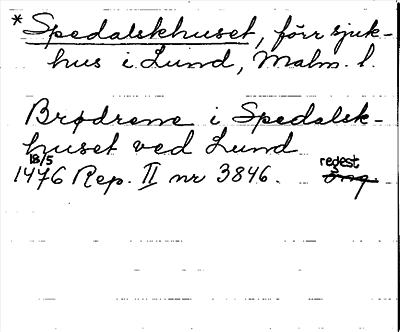 *Spedalskhuset, förr sjuk-
hus i Lund, Malm. l.
Brødrene i Spedalsk-
huset ved Lund
18/5 regest
1476 Rep. II nr 3846. Orig